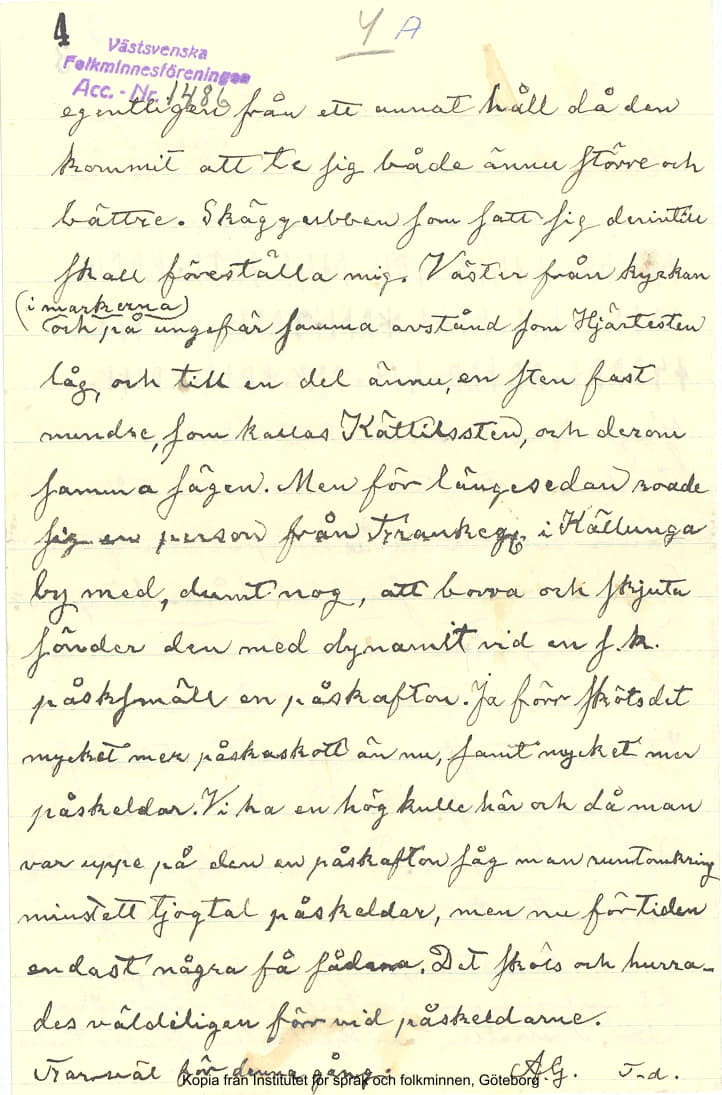 4
4 A
Västsvenska
Folkminnesföreningen
Acc. - Nr. 1486
egentligen från ett annat håll då den
kommit att te sig både ännu större och
bättre. Skäggubben som satt sig derintill
skall föreställa mig. Väster från kyrkan
(i markerna)
och på ungefär samma avstånd som Hjärtesten
låg, och till en del ännu, en sten fast
mindre, som kallas Kättilssten, och derom
samma sägen. Men för längesedan roade
sig en person från i Källunga
by med, dumt nog, att borra och skjuta
sönder den med dynamit vid en s.k.
påsksmäll en påskafton. Ja förr sköts det
mycket mer påskaskott än nu, samt mycket mer
påskeldar. Vi ha en hög kulle här och då man
var uppe på den en påskafton såg man runtomkring
minst ett tjogtal påskeldar, men nu för tiden
endast några få sådana. Det sköts och hurra-
des väldeligen förr vid påskeldarne.
Farväl för denna gång. A.G. T-d.
Kopia från Institutet för språk och folkminnen, Göteborg